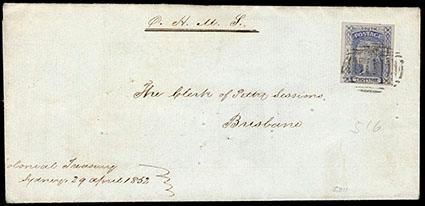 O. H. M. S.
POSTAGE
The Clerk of Petty Sessions
Brisbane
516
Colonial Treasury
Sydney 29 April 1852